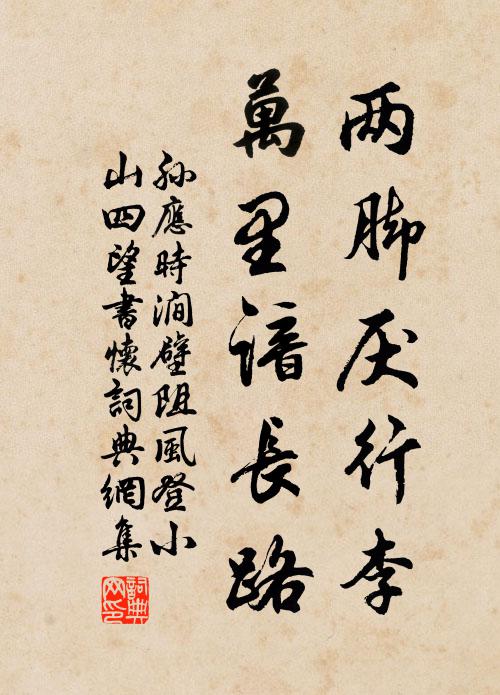 两脚厌行李
萬里諳長路
孙應時澗壁阻風登小
山四望書懷詞典網集
詞典
网印